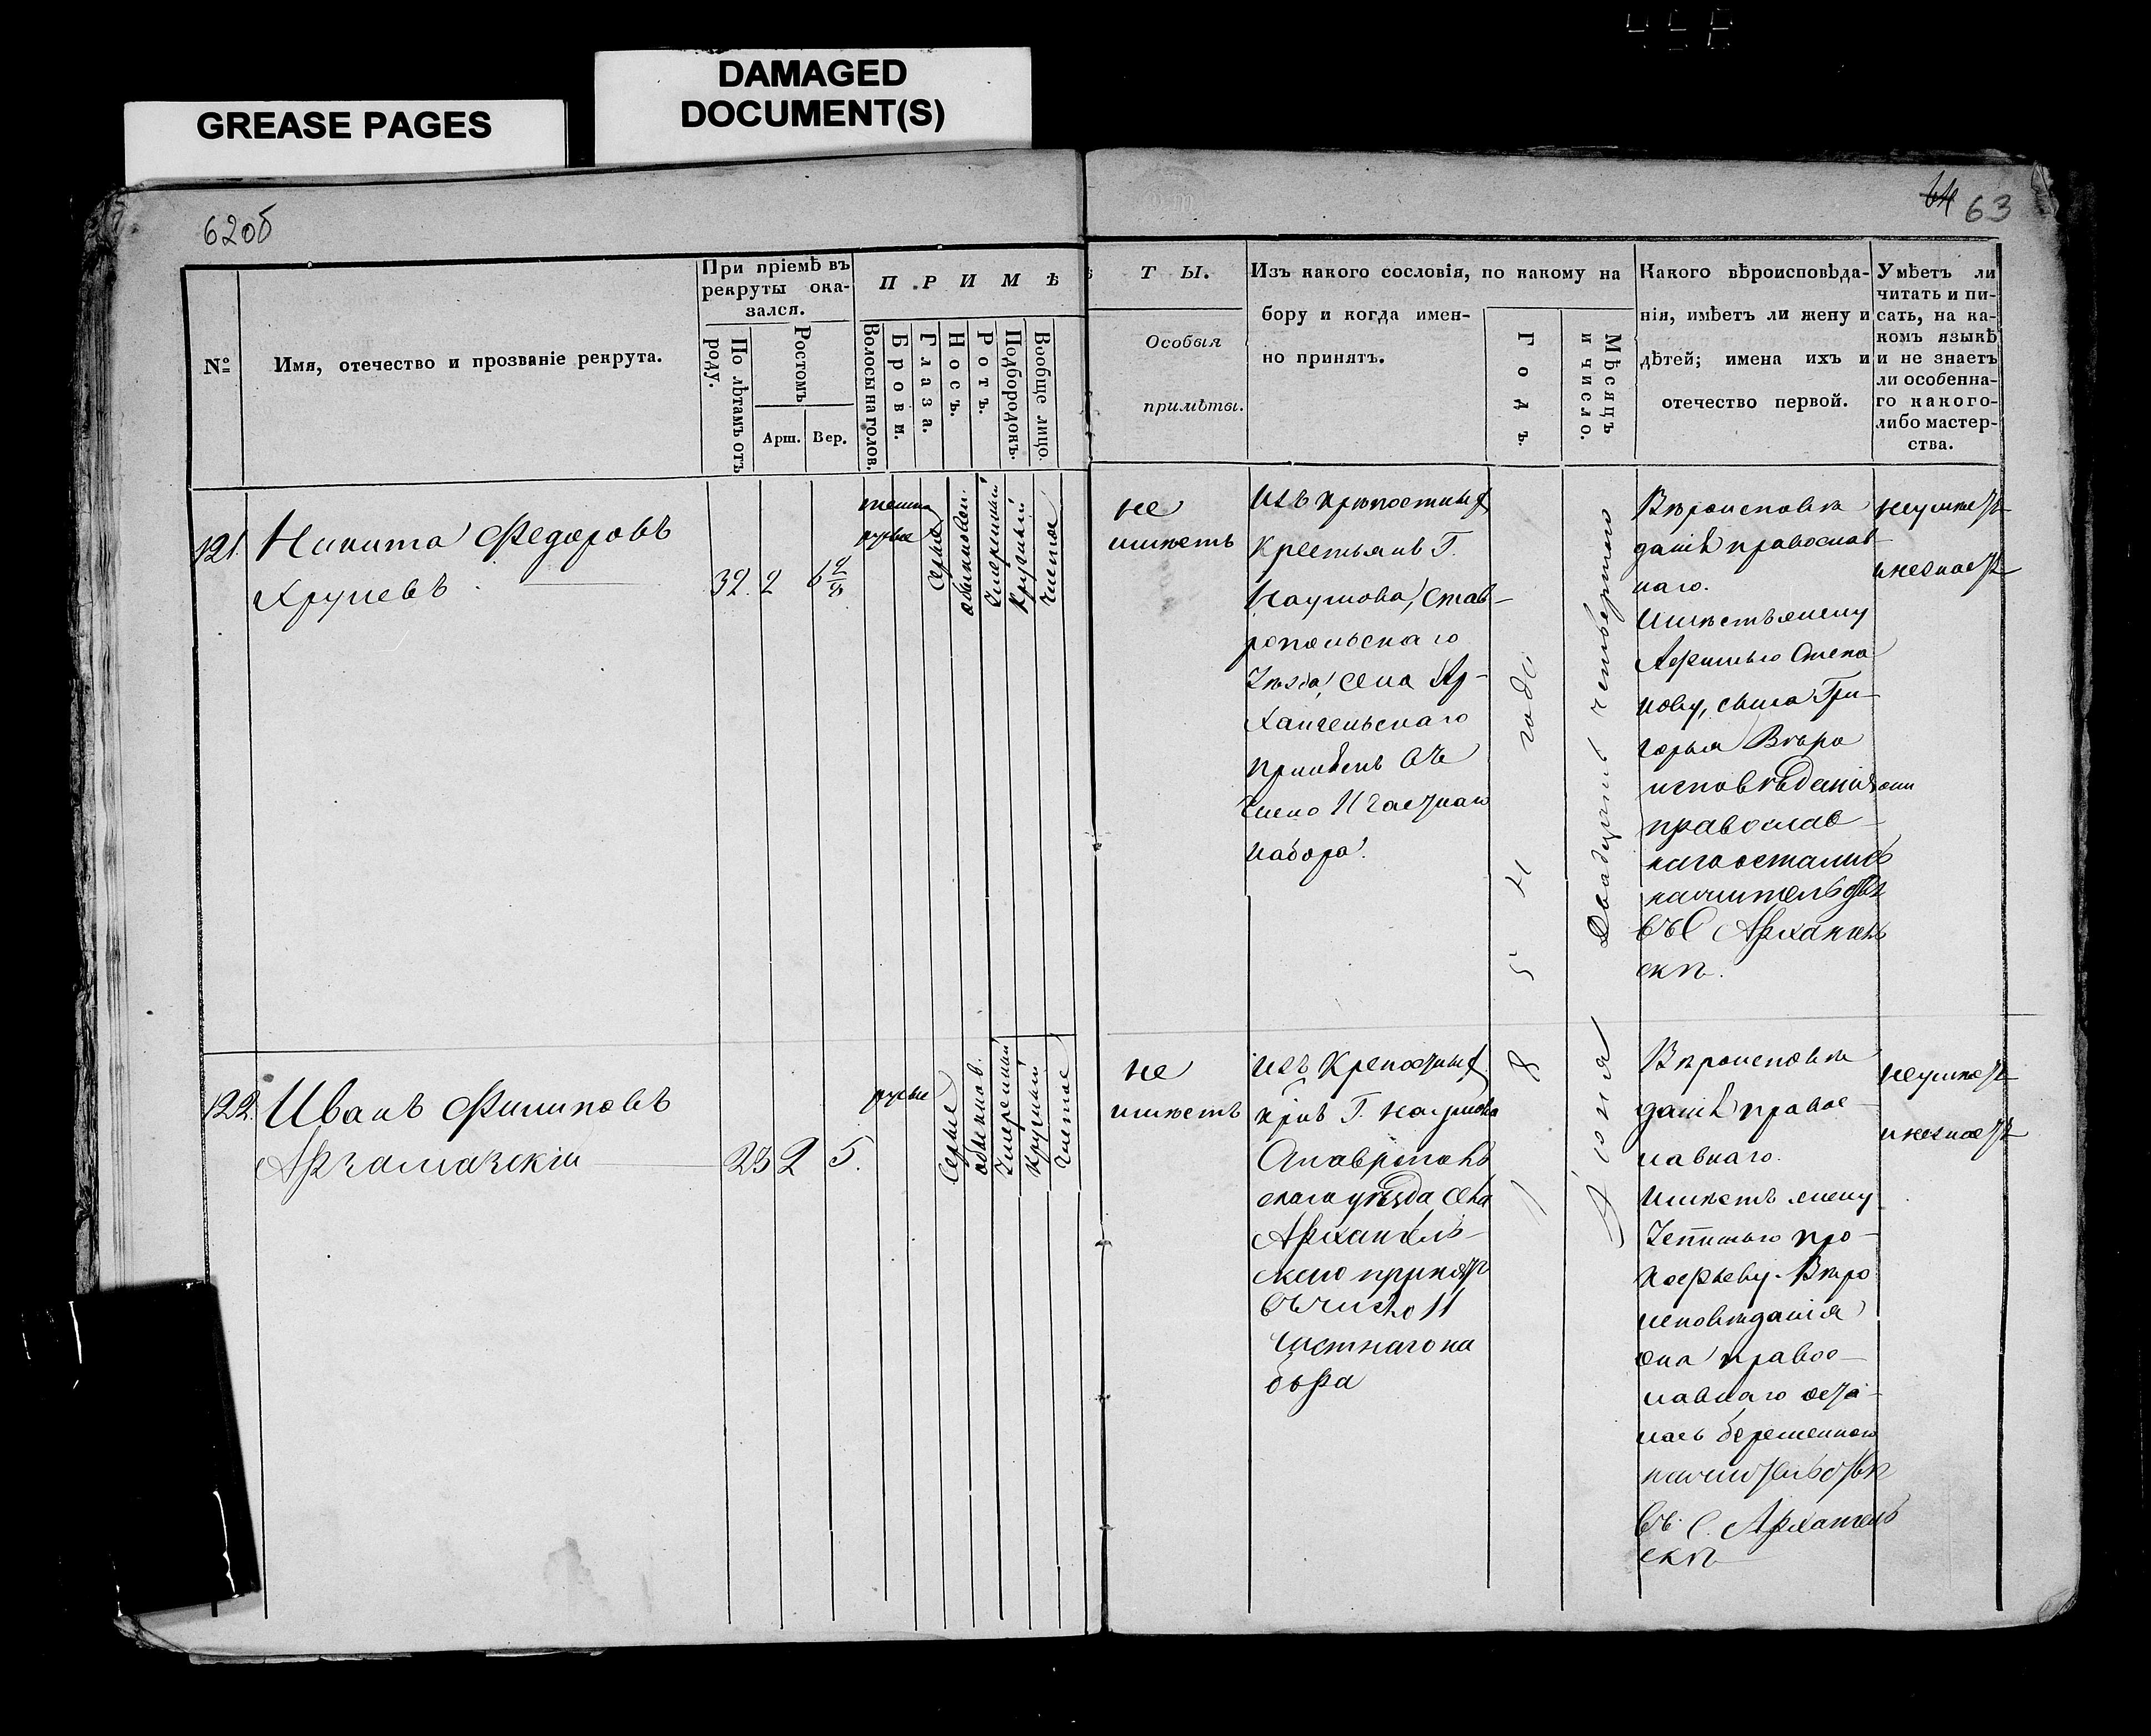 GREASE PAGES
DAMAGED
DOCUMENT(S)
62об
64 63
№
Имя, отечество и прозваніе рекрута.
При пріемѣ въ
рекруты ока-
зался.
По лѣтамъ отъ
роду.
Ростомъ
Арш.
Вер.
ПРИМѢ
Волосы на голов.
Брови.
Глаза.
Носъ.
Ротъ.
Подбородокъ.
Вообще лицо.
ТЫ.
Особыя
примѣты.
Изъ какого сословія, по какому на
бору и когда имен-
но принятъ.
Годъ.
Мѣсяцъ
и число.
Какого вѣроисповѣда-
нія, имѣетъ ли жену и
дѣтей; имена ихъ и
отечество первой.
Умѣетъ ли
читать и пи-
сать, на ка-
комъ языкѣ
и не знаетъ
ли особенна-
го какого-
либо мастер-
ства.
121.
Никита Федоровъ
32. 2 6 2/8
темно
русые
Серые
обыкновен.
Умеренный
Круглый
Чистое
не
имѣетъ
изъ крѣпостныхъ
Крестьянъ Г.
Наумова, Став-
ропольскаго
Уѣзда, села Ар-
хангельскаго
число 11 частнаго
набора.
1854 года
Апреля двадцать четвертаго
Вѣроисповѣ
данія православ-
наго.
Имѣетъ жену
Афимью Степа
нову, сына Гри-
горья Вѣро
исповѣданія они
православ-
наго остались
на жительствѣ
въ С Архангель
скѣ.
неумѣетъ
и незнаетъ
122.
Иванъ Филиповъ
Арзамазскій
23 2 5.
русые
Серые
обыкнов.
Умеренный
Круглый
Чистое
не
имѣетъ
изъ Крепостныхъ
крѣ Г. Наумова
Ставрополь
скаго уѣзда села
Архангель-
скаго принятъ
въ число 11
частнаго на
бора
Вѣроисповѣ
данія правос-
лавнаго.
Имѣетъ жену
кофьеву. Вѣро
исповѣданія
она правос-
лавнаго оста-
лась беременною
на жительствѣ
въ С. Архангель
скѣ
неумѣетъ
и незнаетъ